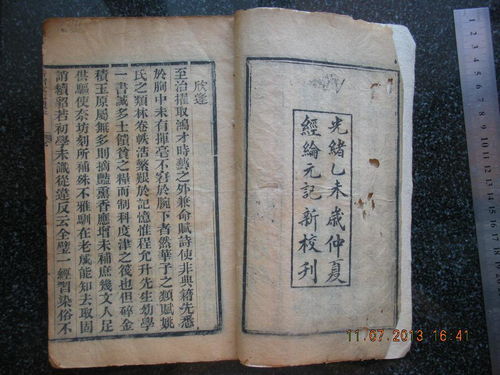 光緒乙未歲仲夏
經綸元記新校刊
欣逢
至治擢取鴻才時藝之外兼命賦詩使非典籍先悉
於胸中未有揮毫不窘於腕下者然華子之類賦姚
氏之類林卷帙浩繁艱於記憶惟程允升先生幼學
一書誠多士饋貧之糧而制科度津之筏也但碎金
積玉原屬無多則摘艷薰香應增未補庶幾文人足
供驅使奈坊刻所補殊不雅馴在老成能知去取固
請積貂若初學未識從違反云全璧一經習染俗不
11.07.2013 16:41